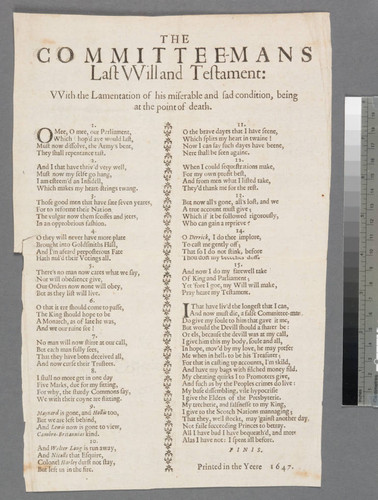 THE
COMMITTEE-MANS
Last Will and Testament:
VVith the Lamentation of his miserable and sad condition, being
at the point of death.
1.
O Mee, O mee, our Parliament,
Which I hop'd ave would last,
Must now dissolve, the Army's bent,
They shall repentance tast.
2.
And I that have thriv'd very well,
Must now my selfe go hang,
I am esteem'd an Infidell,
Which makes my heart strings twang.
3.
Those good men that have sate seven yeares,
For to reforme their Nation
The vulgar now them scoffes and jeers,
In an opprobrious fashion.
4.
O they will never have more plate
Brought into Goldsmiths Hall,
And I'm afeard preposterous Fate
Hath nul'd their Votings all.
5.
There's no man now cares what we say,
Nor will obedience give,
Our Orders now none will obey,
But as they list will live.
6.
O that it ere should come to passe,
The King should hope to be
A Monarch, as of late he was,
And we our ruine see!
7.
No man will now stoope at our call,
But each man fully sees,
That they have been deceived all,
And now curse their Trustees.
8.
I shall no more get in one day
Five Marks, but for my sitting,
For why, the sturdy Commons say,
We with their coyne are flitting.
9.
Maynard is gone, and Hollis too,
But we are left behind,
And Lewis now is gone to view,
Cambro-Britannias kind.
10.
And Walter Long is run away,
And Nicols that Esquire,
Colonel Harley durst not stay,
But left us in the fire.
11.
O the brave dayes that I have seene,
Which splits my heart in twaine!
Now I can say such dayes have beene,
Nere shall be seen againe.
12.
When I could sequestrations make,
For my own privat best,
And from men what I listed take,
They'd thank me for the rest.
13.
But now all's gone, all's lost, and we
Your account must give;
Which if it be followed rigorously,
Who can gain a reprieve?
14.
O Derrick, I do thee implore,
To cast me gently off,
That so I do not stink, before
Thou doff my breeches doffe.
15.
And now I do my farewell take
Of King and Parliament;
Yet fore I goe, my Will will make,
Pray heare my Testament.
I That have liv'd the longest that I can,
And now must die, a false Committee-man.
Do give my soule to him that gave it me,
But would the Devill should a sharer be:
Or els, because the devill was at my call,
I give him this my body, soule and all,
In hope, mov'd by my love, he may prefer
Me when in hell to be his Treasurer:
For that in casting up accounts, I'm skild,
And have my bags with filched money fild.
My cheating quirks I to Promoters give,
And such as by the Peoples crimes do live:
My base dissembling, vile hypocrisie
I give the Elders of the Presbyterie.
My trecherie, and falsnesse to my King,
I give to the Scotch Nation managing;
That they, well stockt, may 'gainst another day,
Not faile succeeding Princes to betray.
All I have had I have bequeath'd, and more
Alas I have not: I spent all before.
FINIS.
Printed in the Yeere 1647.